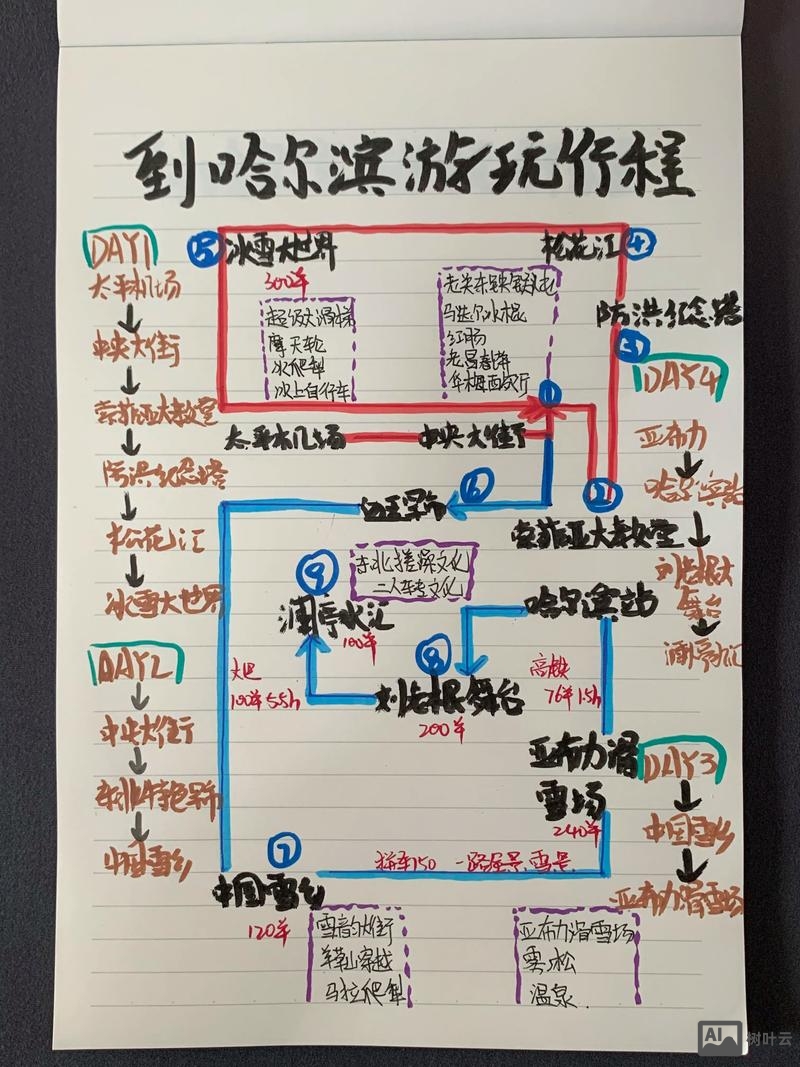 到哈尔滨游玩行程
DAY1
太平机场
中央大街
索菲亚大教堂
防洪纪念塔
松花江
冰雪大世界
DAY2
中央大街
东北特色早市
中国雪乡
⑤ 冰雪大世界
300羊
超级大滑梯
摩天轮
冰爬犁
冰上自行车
松花江 ④
马迭尔冰棍
红肠
老昌春饼
华梅西餐厅
防洪纪念塔
③
①
太平机场
中央大街
②
索菲亚大教堂
⑥
早市
⑨
东北搓澡文化
二人转文化
澜亭水汇
100羊
哈尔滨站
⑧
刘老根舞台
200羊
大巴
100羊 5.5h
高铁
76羊 1.5h
亚布力滑
雪场
240羊
⑦
中国雪乡
120羊
拼车150 一路尾景,雪景
雪韵大街
羊草山穿越
马拉爬犁
亚布力滑雪场
雾松
温泉
DAY4
亚布力
哈尔滨站
刘老根大
舞台
澜亭水汇
DAY3
中国雪乡
亚布力滑雪场
AI 树叶云